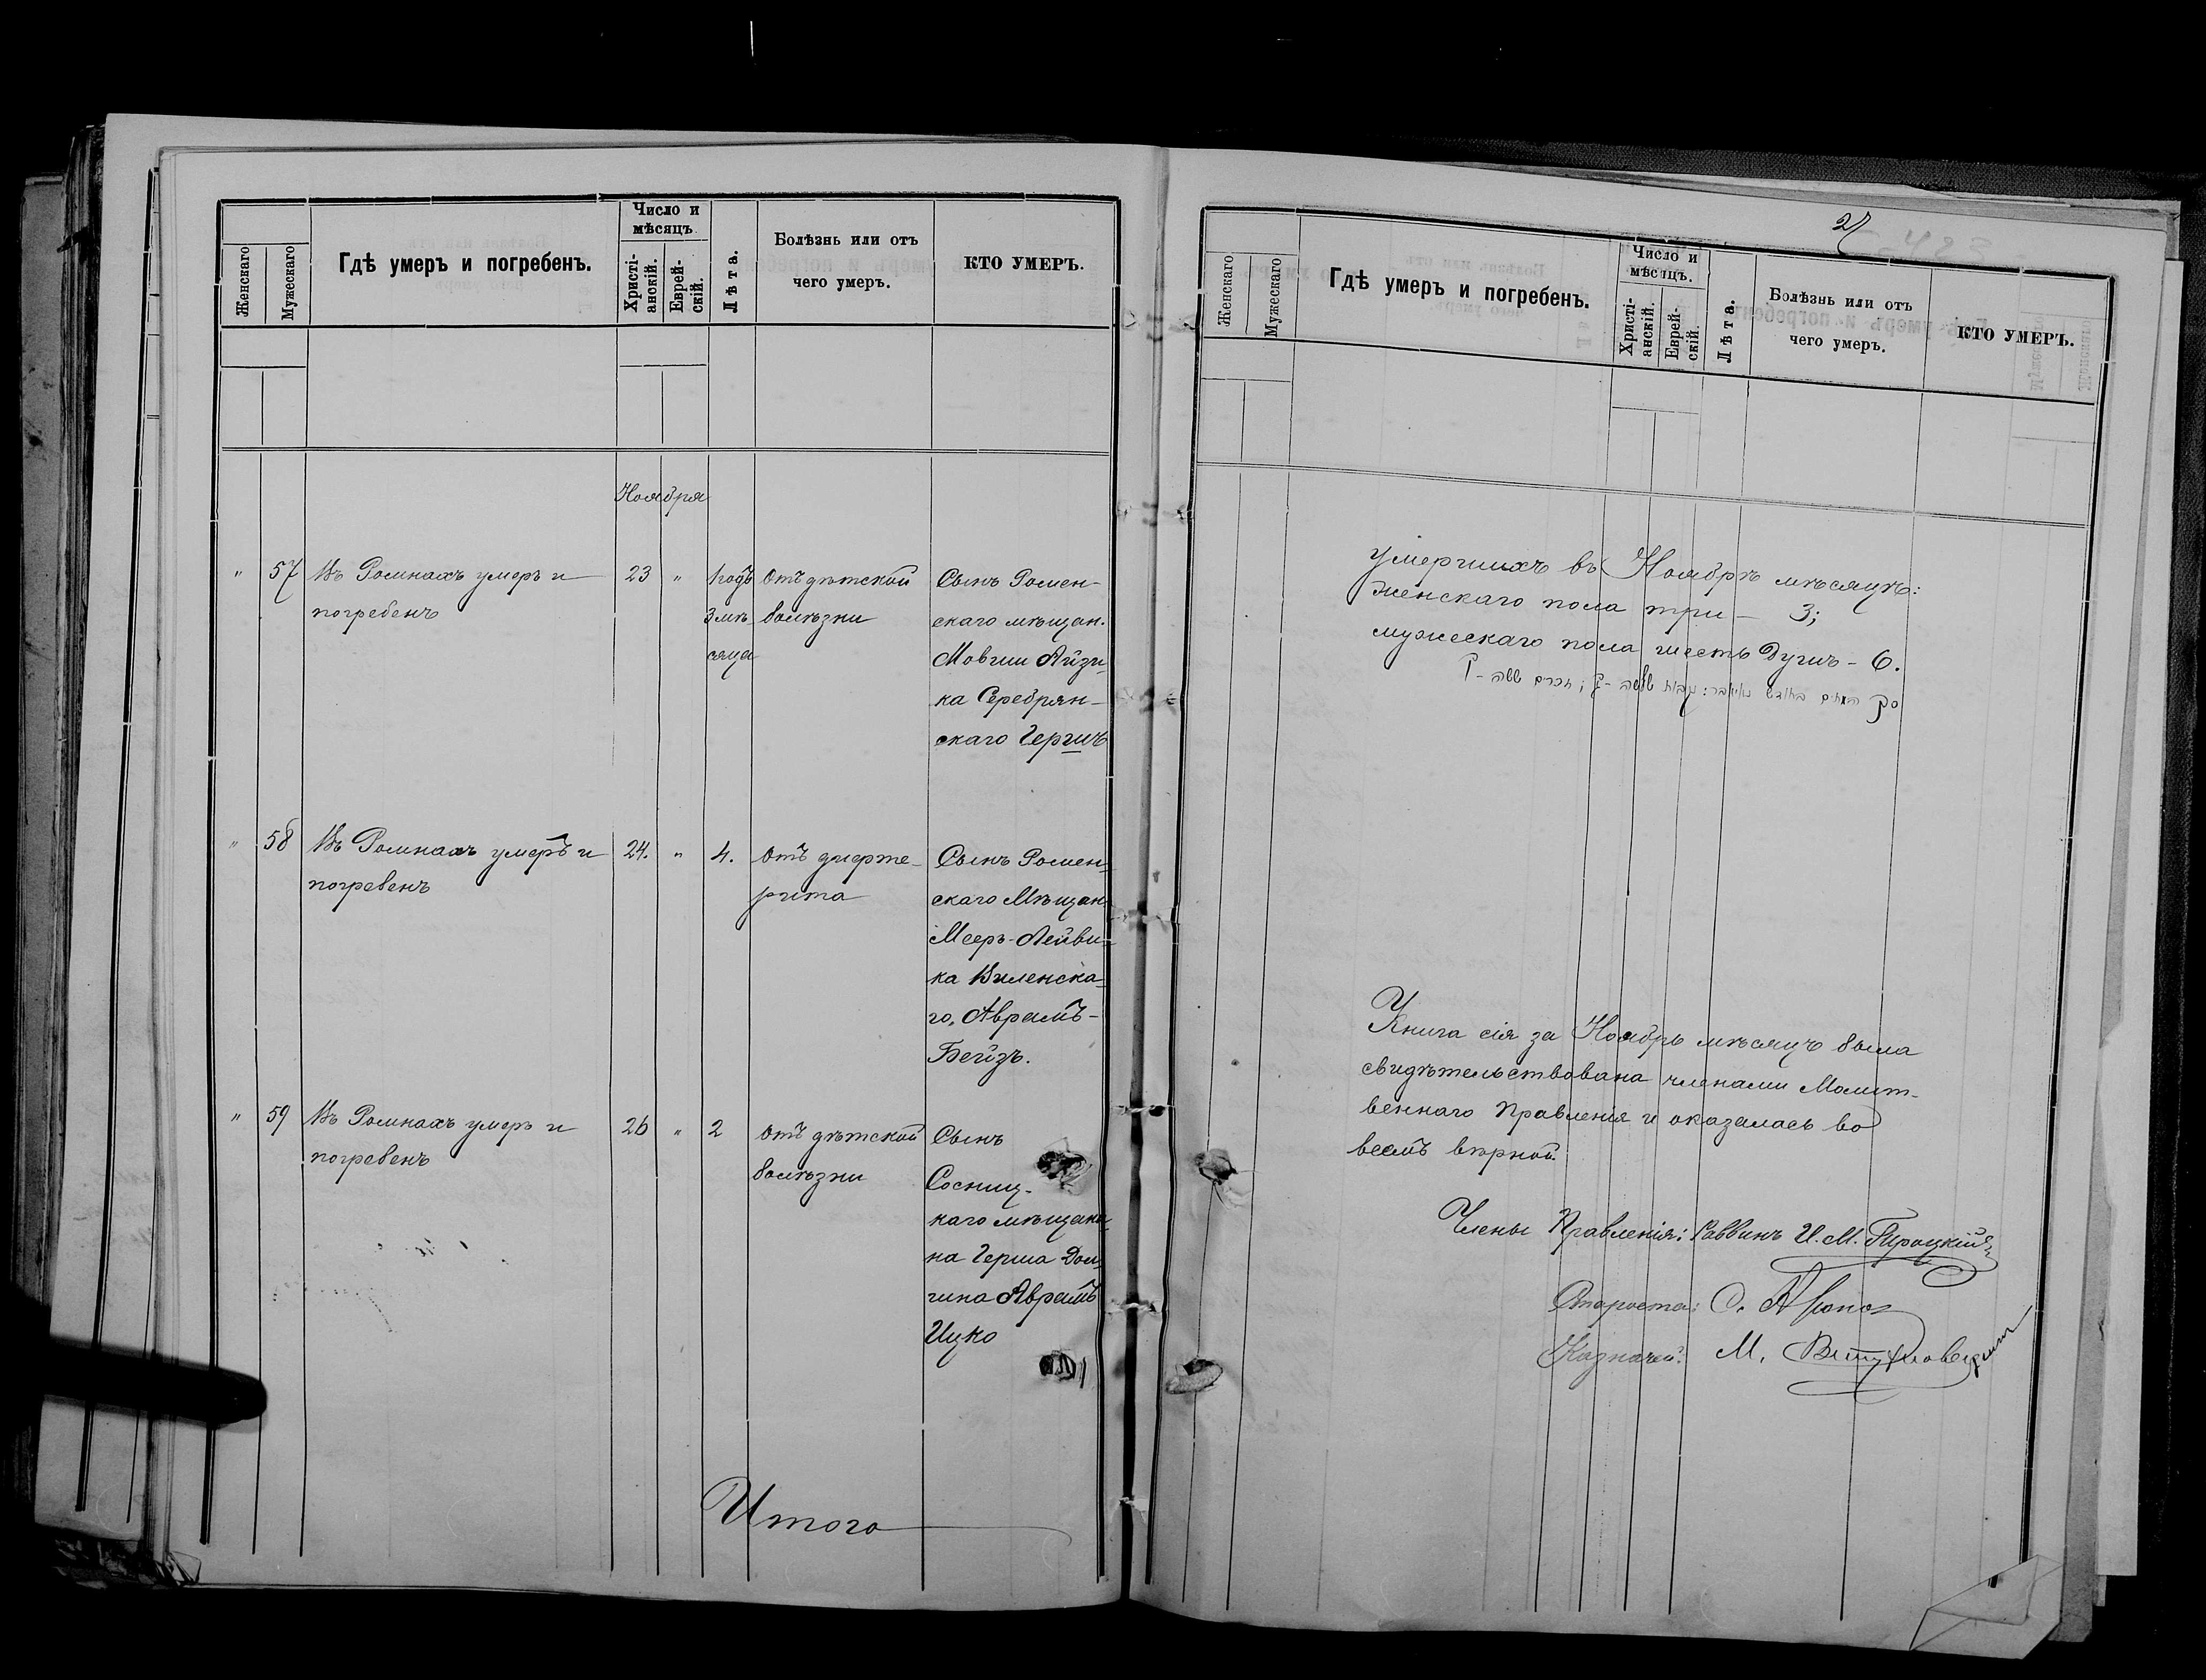 Женскаго
Мужескаго
Гдѣ умеръ и погребенъ.
Число и
мѣсяцъ.
Христі-
анскій.
Еврей-
скій.
Лѣта.
Болѣзнь или отъ
чего умеръ.
КТО УМЕРЪ.
Ноября
" 57 Въ Ромнахъ умеръ и 23 " 1 годъ Отъ дѣтской Сынъ Ромен-
погребенъ 3 мѣ- болѣзни скаго мѣщан.
сяца Мовши Айзи-
ка Серебрян-
скаго Гершъ
" 58 Въ Ромнахъ умеръ и 24. " 4. Отъ дифте- Сынъ Ромен-
погребенъ рита скаго Мѣщан.
Мееръ-Лейви-
ка Виленска-
го, Аврамъ-
Бейзъ.
" 59 Въ Ромнахъ умеръ и 26 " 2 Отъ дѣтской Сынъ
погребенъ болѣзни Сосниц-
каго мѣщани-
на Герша Дол-
гина Аврамъ
Ицко
Итого
27
423
Женскаго
Мужескаго
Гдѣ умеръ и погребенъ.
Число и
мѣсяцъ.
Христі-
анскій.
Еврей-
скій.
Лѣта.
Болѣзнь или отъ
чего умеръ.
КТО УМЕРЪ.
умершихъ въ Ноябрѣ мѣсяцѣ:
женскаго пола три – 3;
мужескаго пола шесть душъ – 6.
Книга сія за Ноябрь мѣсяцъ была
свидѣтельствована членами Молит-
веннаго Правленія и оказалась во
всемъ вѣрной.
Члены Правленія: Раввинъ И. М.
Староста: С.
Казначей: М.